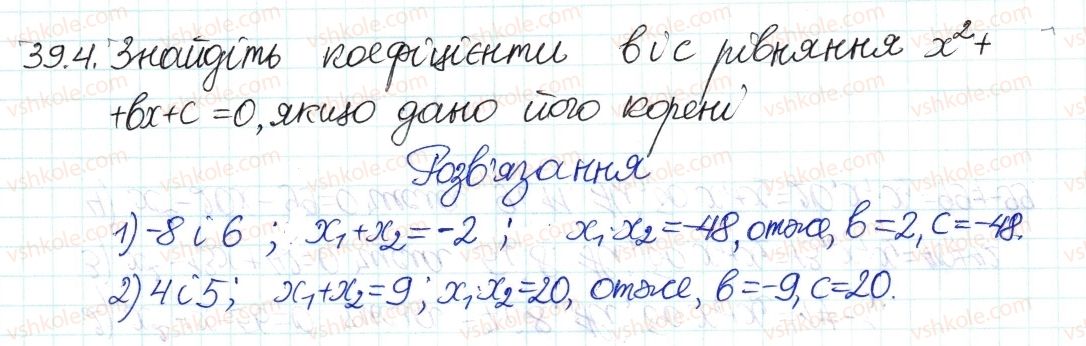 39.4. Знайдіть коефіцієнти в і с рівняння x²+
+вx+c=0, якщо дано його корені
Розв'язання
1) -8 і 6 ; x₁+x₂=-2 ; x₁·x₂=-48, отже, в=2, с=-48.
2) 4 і 5; x₁+x₂=9; x₁·x₂=20, отже, в=-9, с=20.